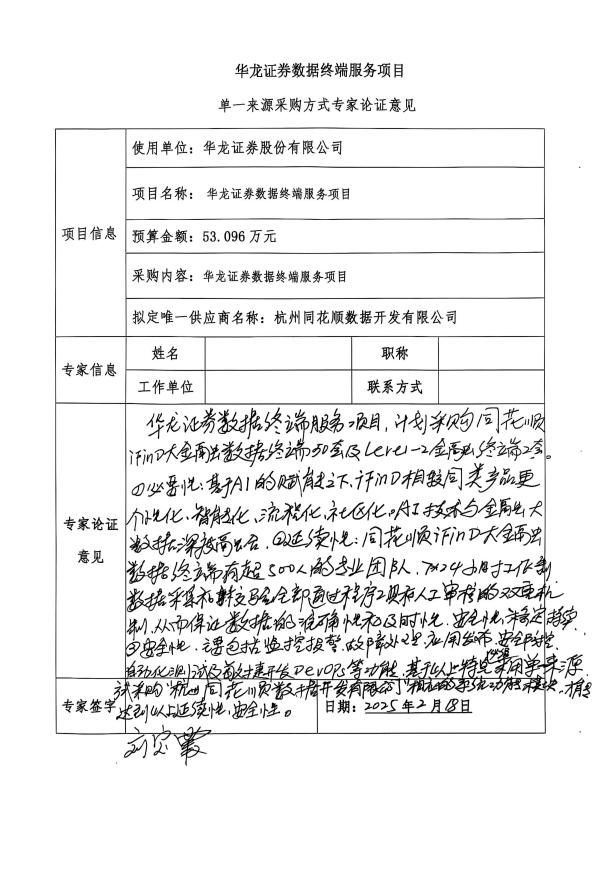 华龙证券数据终端服务项目
单一来源采购方式专家论证意见
项目信息
使用单位：华龙证券股份有限公司
项目名称：华龙证券数据终端服务项目
预算金额：53.096 万元
采购内容：华龙证券数据终端服务项目
拟定唯一供应商名称：杭州同花顺数据开发有限公司
专家信息
姓名
职称
工作单位
联系方式
专家论证
意见
华龙证券数据终端服务项目，计划采购同花顺
iFinD大金融数据终端50套及Level-2金融终端2套。
必要性：基于AI的赋能之下，iFinD相较同类产品更
个性化、智能化、流程化、社区化。AI技术与金融大
数据深度融合，延续性：同花顺iFinD大金融
数据终端有超500人的专业团队，7×24小时工作制
数据采集和转交全部通过程序和人工审核的双重机
制，从而保证数据的准确性和及时性、安全性、稳定持续
安全性：主要包括监控报警、故障处理、应用发布、安全
自动化测试及敏捷开发DevOps等功能。基于以上特点采用单一来源
试采购"杭州同花顺数据开发有限公司"相应的系统功能模块，才能
达到以上延续性、安全性。
专家签字
日期：2025年2月18日